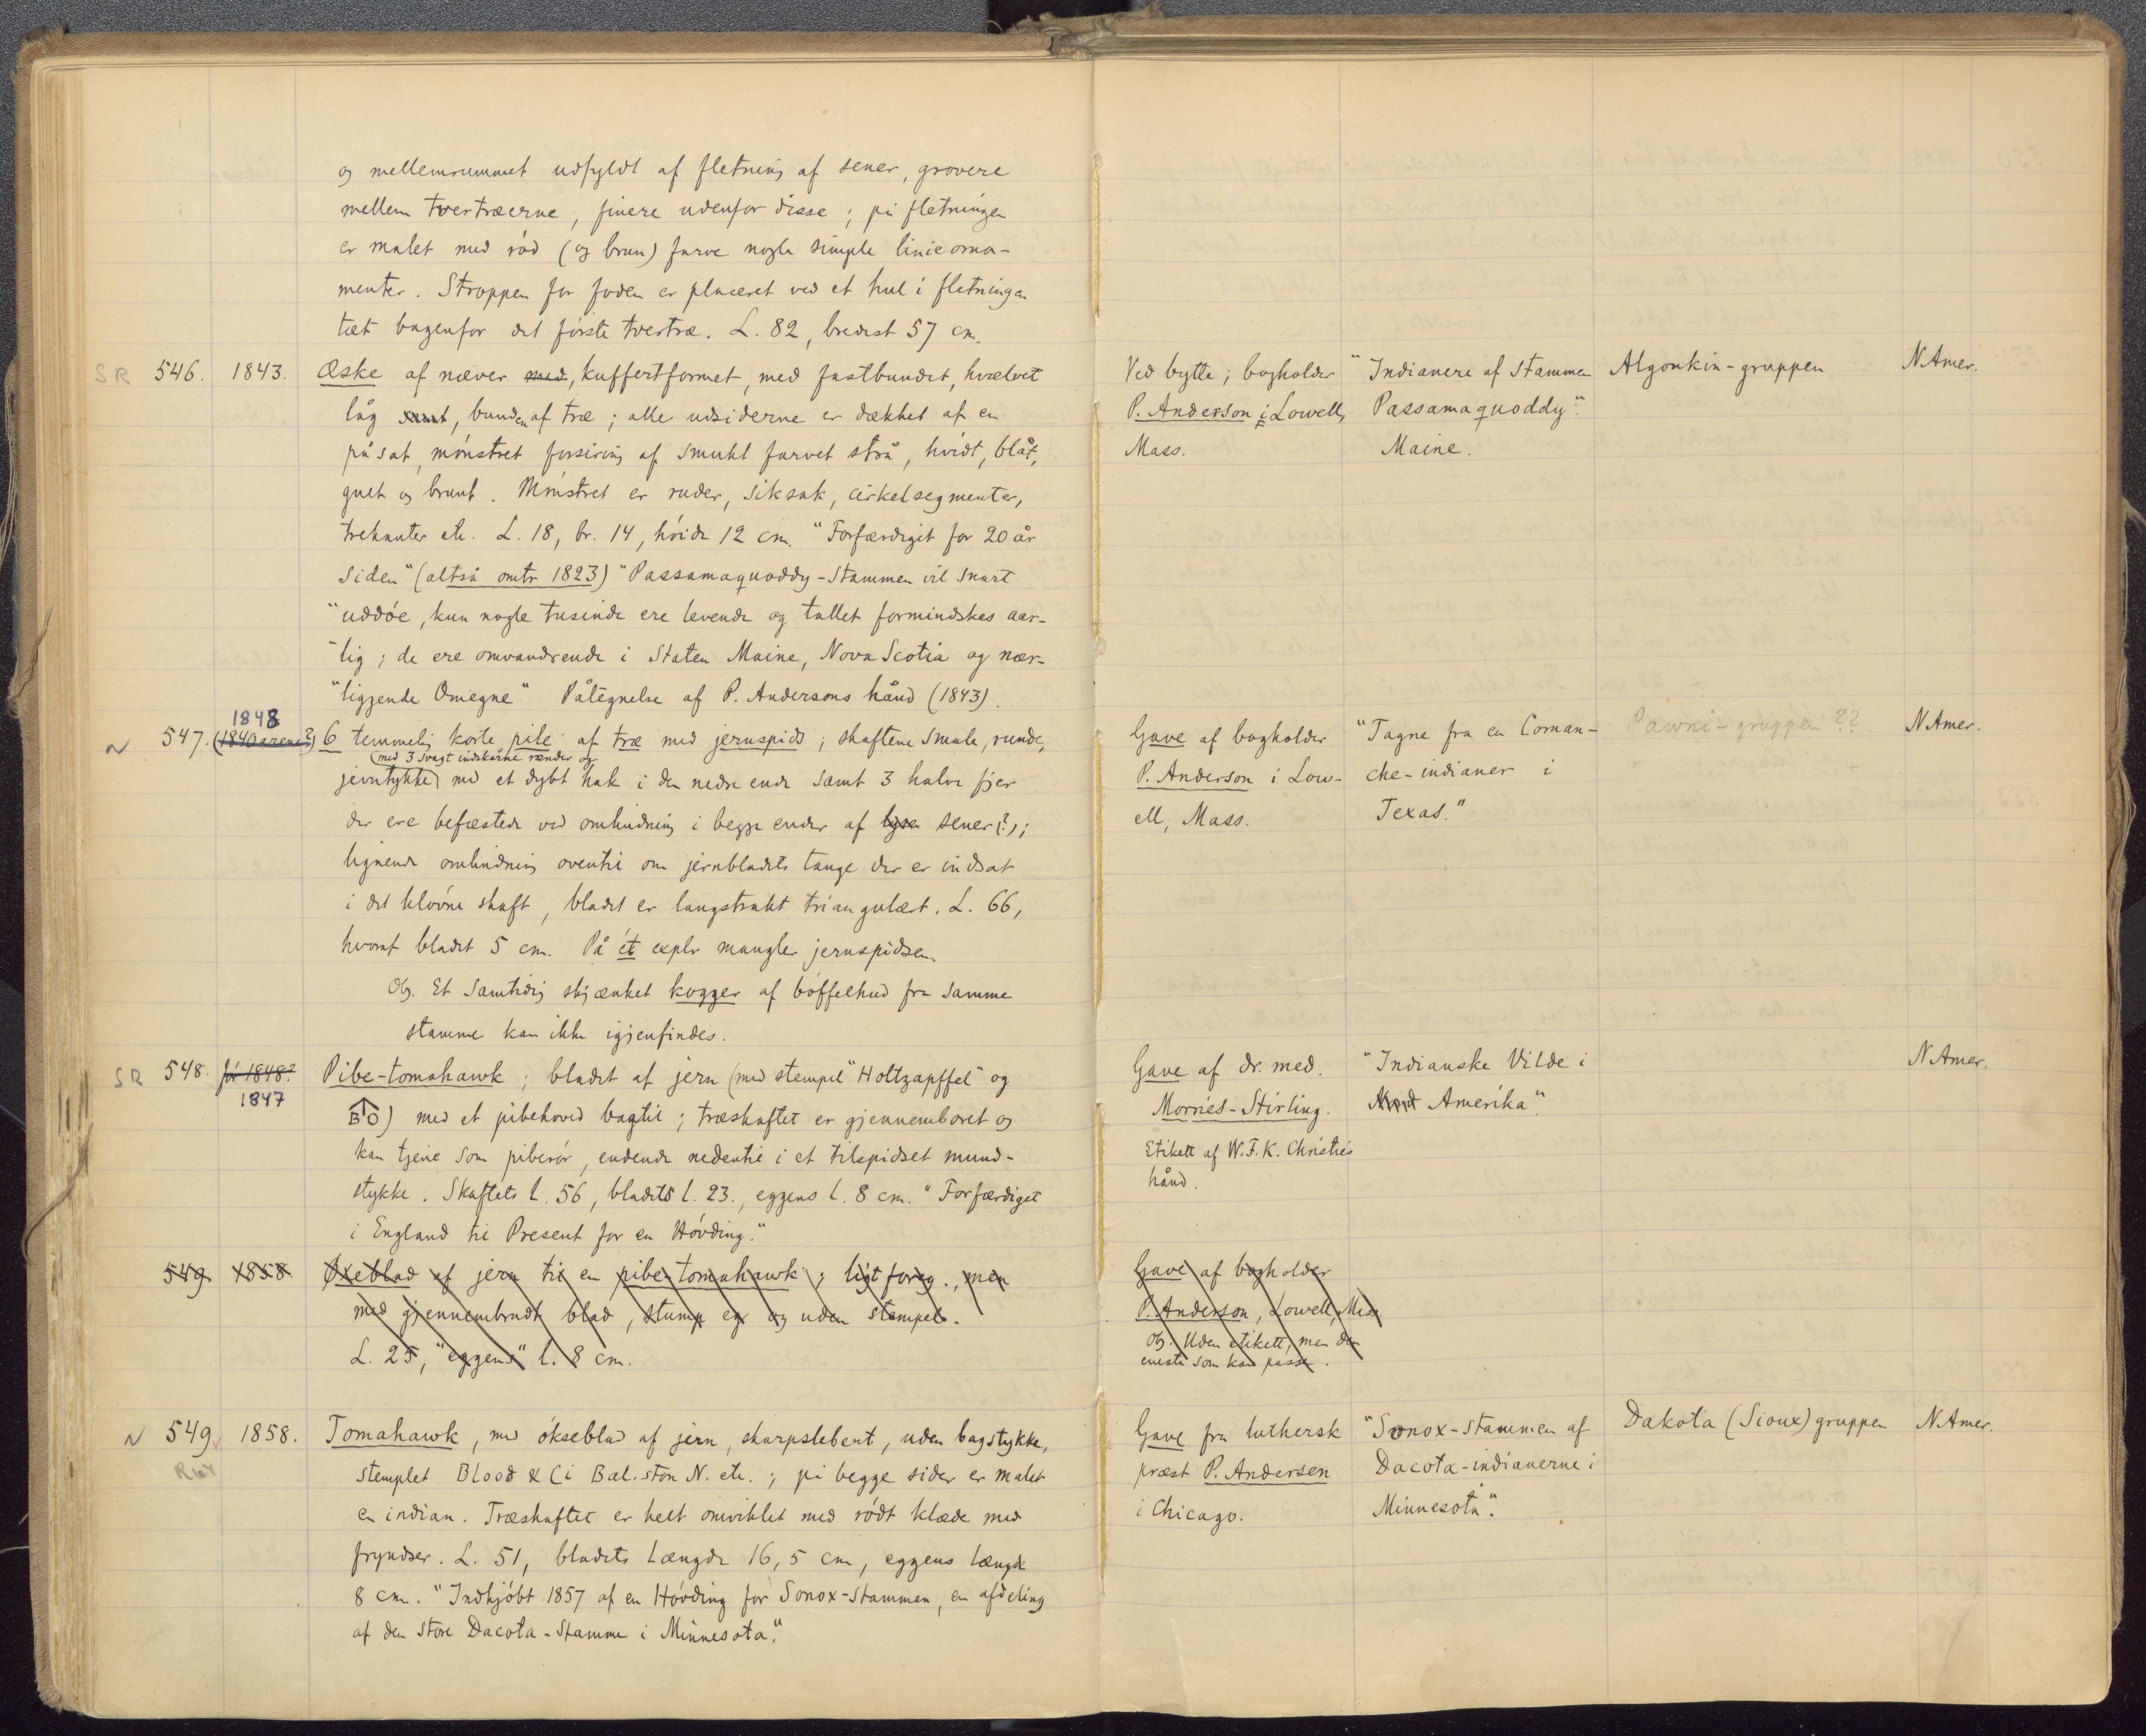 og mellemrummet udfyldt af fletning af sener, grovere
mellem tvertræerne, finere udenfor disse; på fletningen
er malet med röd (og brun) farve nogle simple linieorna-
menter. Stroppen for foden er placeret ved et hul i fletningen
tæt bagenfor det förste tvertræ. L. 82, bredest 57 cm.
SR 546. 1843. Æske af næver med, kuffertformet, med fastbundet, hvælvet
låg samt, bunden af træ; alle udsiderne er dækket af en
påsat, mönstret forsiring af smukt farvet strå, hvidt, blåt,
gult og brunt. Mönstret er ruder, siksak, cirkelsegmenter,
trekanter etc. L. 18, br. 14, höide 12 cm. "Forfærdiget for 20 år
siden" (altså omtr 1823) "Passamaquoddy-Stammen vil snart
"uddöe, kun nogle tusinde ere levende og tallet formindskes aar-
"lig; de ere omvandrende i Staten Maine, Nova Scotia og nær-
"liggende Omegne" Påtegnelse af P. Andersons hånd (1843).
Ved bytte; bogholder
P. Anderson i Lowell,
Mass.
"Indianere af Stammen
Passamaquoddy".
Maine.
Algonkin-gruppen
N.Amer.
1848
N 547. (1840 arene?) 6 temmelig korte pile af træ med jernspids; skaftene smale, runde,
(med 3 svagt indskårne rænder og
jevntykke) med et dybt hak i den nedre ende samt 3 halve fjer
der ere befæstede ved ombinding i begge ender af lyse sener(?);
lignende ombinding oventil om jernbladets tange der er indsat
i det klövne skaft, bladet er langstrakt triangulært. L. 66,
hvoraf bladet 5 cm. På ét explr mangler jernspidsen.
Obs. Et samtidig skjænket kogger af böffelhud fra samme
stamme kan ikke igjenfindes.
Gave af bogholder
P. Anderson i Low-
ell, Mass.
"Tagne fra en Coman-
che-indianer i
Texas."
Pawni-gruppen ??
N.Amer.
SR 548. för 1848?
1847
Pibe-tomahawk; bladet af jern (med stempel "Holtzapffel" og
B O) med et pibehoved bagtil; træskaftet er gjennemboret og
kan tjene som piberör, endende nedentil i et tilspidset mund-
stykke. Skaftets l. 56, bladets l. 23., eggens l. 8 cm. "Forfærdiget
i England til Present for en Hövding."
Gave af dr. med.
Morries-Stirling.
Etikett af W.F.K. Christies
hånd.
"Indianske Vilde i
Nord Amerika".
N.Amer.
549. 1858. Öxeblad af jern til en pibe-tomahawk; ligt foreg., men
med gjennembrudt blad, stump eg og uden stempel.
L. 25, "eggens" l. 8 cm.
Gave af bogholder
P. Anderson, Lowell, Mass
Obs. Uden etikett, men den
eneste som kan passe.
N 549. 1858. Tomahawk, med økseblad af jern, skarpslebent, uden bagstykke,
stemplet Blood & Ci Bal.ston N. etc.; på begge sider er malet
en indian. Træskaftet er helt omviklet med rödt klæde med
fryndser. L. 51, bladets længde 16,5 cm, eggens længde
8 cm. "Indkjöbt 1857 af en Hövding for Sonox-Stammen, en afdeling
af den store Dacota-Stamme i Minnesota".
Gave fra luthersk
præst P. Andersen
i Chicago.
"Sonox-Stammen af
Dacota-indianerne i
Minnesota".
Dakota (Sioux) gruppen
N.Amer.